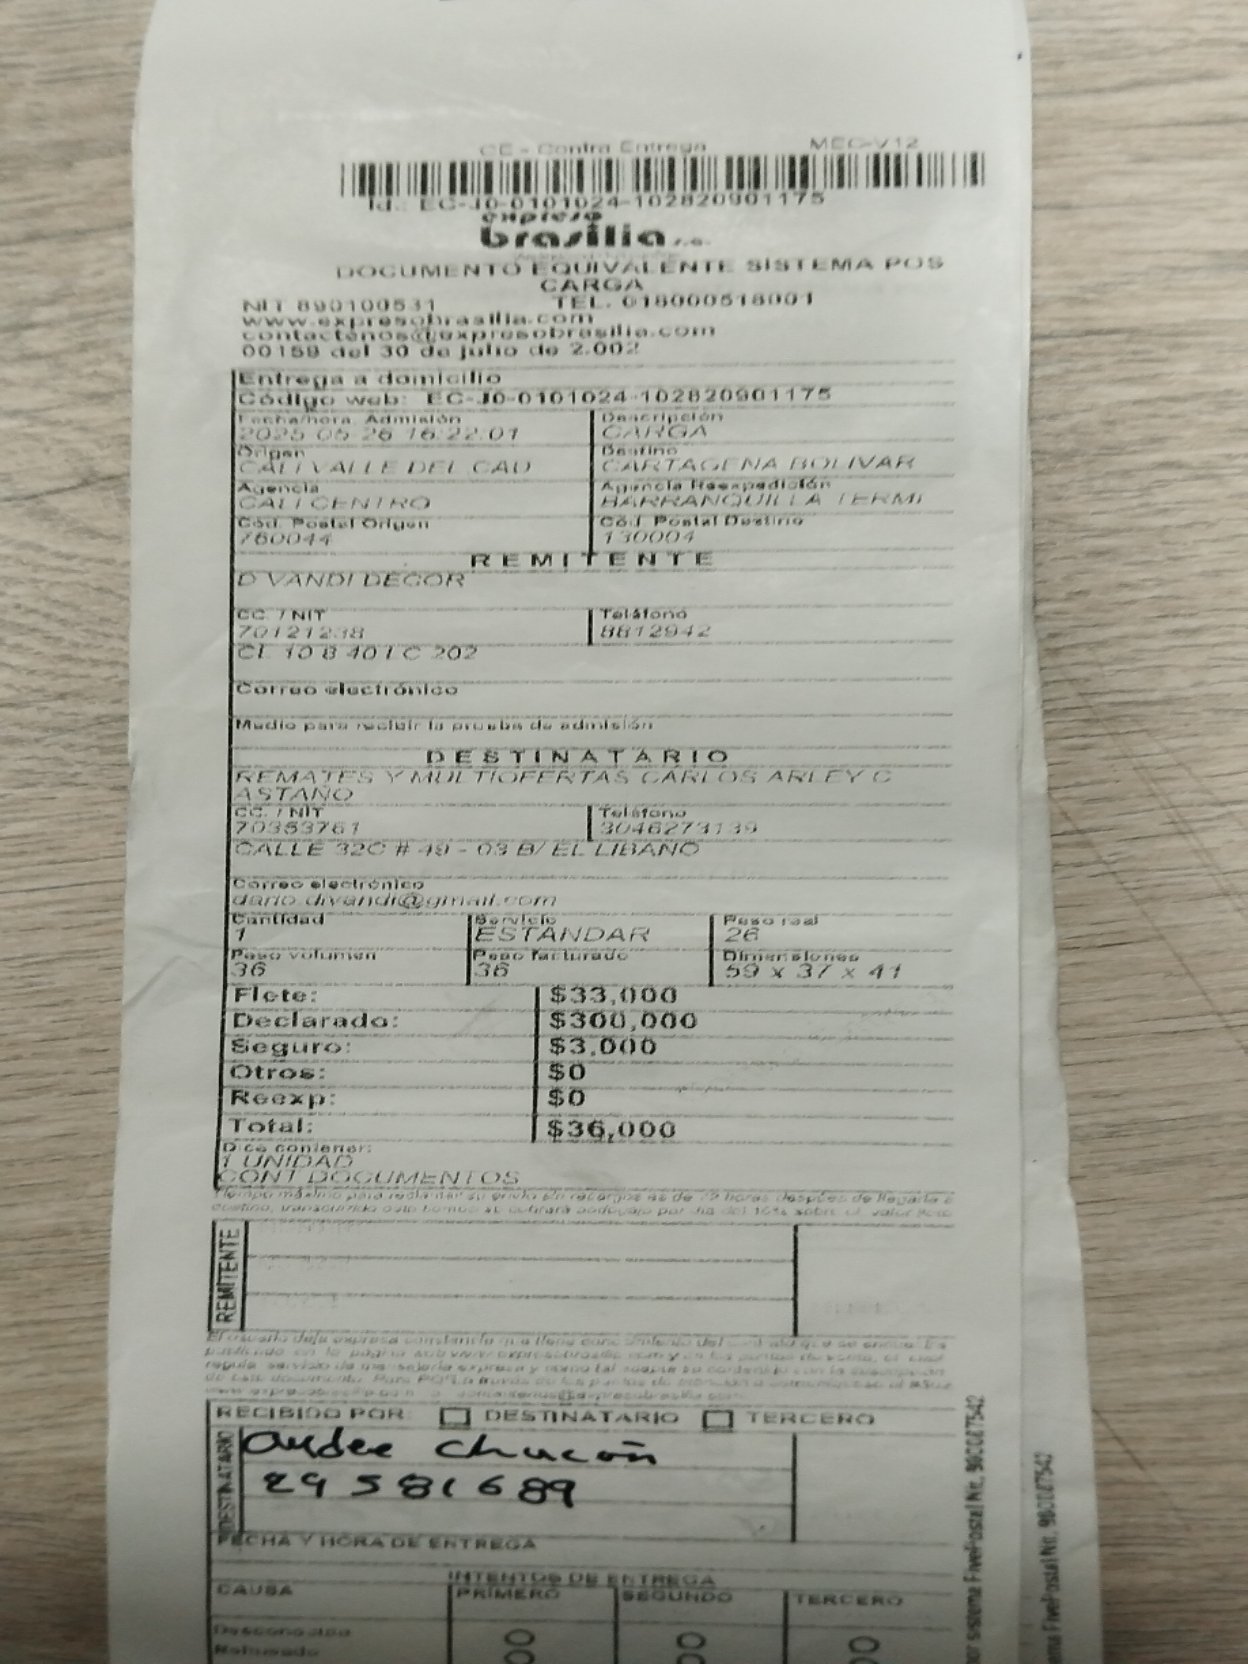 CE - Contra Entrega MEC-V12
Id.: EC-J0-0101024-102820901175
expreso
brasilia s.a.
DOCUMENTO EQUIVALENTE SISTEMA POS
CARGA
NIT 890100531 TEL. 018000518001
www.expresobrasilia.com
contactenos@expresobrasilia.com
00158 del 30 de julio de 2.002
Entrega a domicilio
Código web: EC-J0-0101024-102820901175
Fecha/hora. Admisión Descripción
2025-05-26 16:22:01 CARGA
Origen Destino
CALI VALLE DEL CAU CARTAGENA BOLIVAR
Agencia Agencia Reexpedición
CALI CENTRO BARRANQUILLA TERMI
Cód. Postal Origen Cód. Postal Destino
760044 130004
REMITENTE
D VANDI DECOR
CC. / NIT Teléfono
70121238 8812942
CL 10 8 40 LC 202
Correo electrónico
Medio para recibir la prueba de admisión
DESTINATARIO
REMATES Y MULTIOFERTAS CARLOS ARLEY C
ASTAÑO
CC. / NIT Teléfono
70353761 3046273139
CALLE 32C # 49 - 03 B/ EL LIBANO
Correo electrónico
dario.divandi@gmail.com
Cantidad Servicio Peso real
1 ESTANDAR 26
Peso volumen Peso facturado Dimensiones
36 36 59 x 37 x 41
Flete: $33,000
Declarado: $300,000
Seguro: $3,000
Otros: $0
Reexp: $0
Total: $36,000
Dice contener:
1 UNIDAD
CONT DOCUMENTOS
Tiempo máximo para reclamar su envío sin recargos es de 72 horas después de llegada a
destino, transcurrido este tiempo se cobrará bodegaje por día del 10% sobre el valor flete
REMITENTE
El usuario deja expresa constancia que tiene conocimiento del
RECIBIDO POR: DESTINATARIO TERCERO
DESTINATARIO
aydee chacon
29581689
FECHA Y HORA DE ENTREGA
INTENTOS DE ENTREGA
CAUSA PRIMERO SEGUNDO TERCERO
Desconocido
Rehusado
por sistema FivePostal Nit. 900087542
sistema FivePostal Nit. 900087542